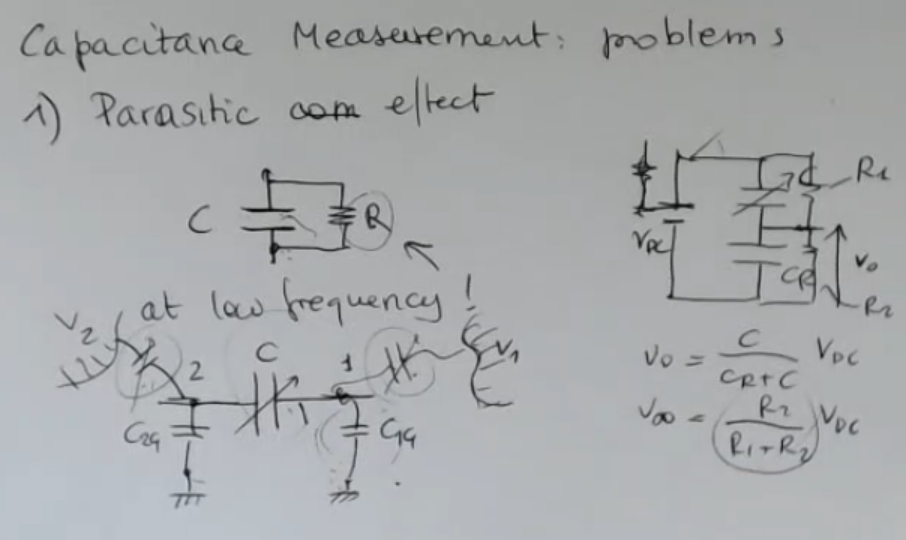 Capacitance Measurement: problems
1) Parasitic com effect
C R
at low frequency!
V2 2 C 1 V1
C2G C1G
R1
VDC CR Vo
R2
Vo = C / CR+C VDC
V∞ = R2 / R1+R2 VDC